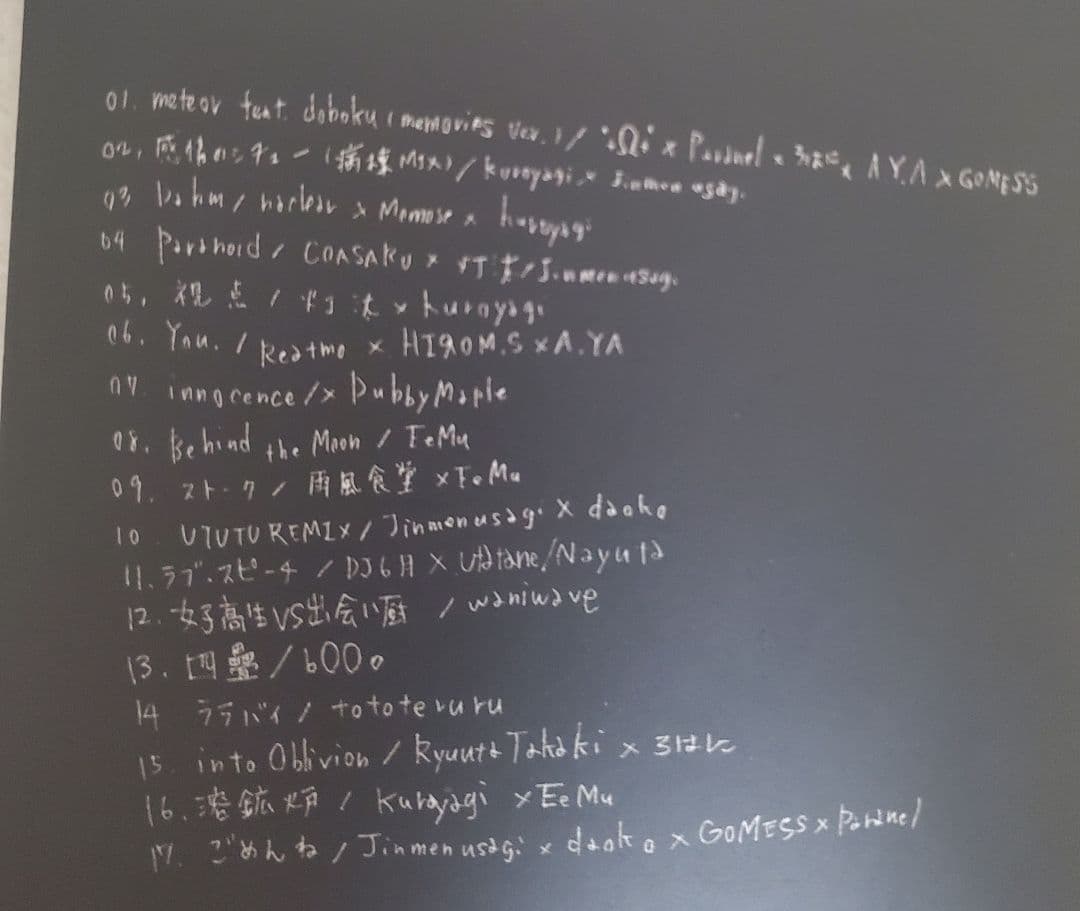 01. meteor feat. doboku (memories Ver.) / :Ω: x Paranel x ろはに x A.Y.A x GOMESS
02, 感傷のシチュー (病棟MIX) / kuroyagi x Jinmenusagi
03 Dahm / x Momose x kuroyagi
04 Paranoid / COASARU x / Jinmenusagi
05, 視点 / x kuroyagi
06. You. / Reatmo x HIROM.S x A.YA
07 innocence / x DubbyMaple
08. Behind the Moon / EeMu
09. ストーク / 雨風食堂 x EeMu
10 UTUTU REMIX / Jinmenusagi X daoko
11. ラブ・スピーチ / DJ6月 X Utatane/Nayuta
12. 女子高生VS出会い厨 / waniwave
13. 四畳 / 600。
14 ララバイ / tototeruru
15. into Oblivion / Ryuuta Takaki x ろはに
16. 溶鉱炉 / Kuroyagi x EeMu
17. ごめんね / Jinmenusagi x daoko x GOMESS x Paranel